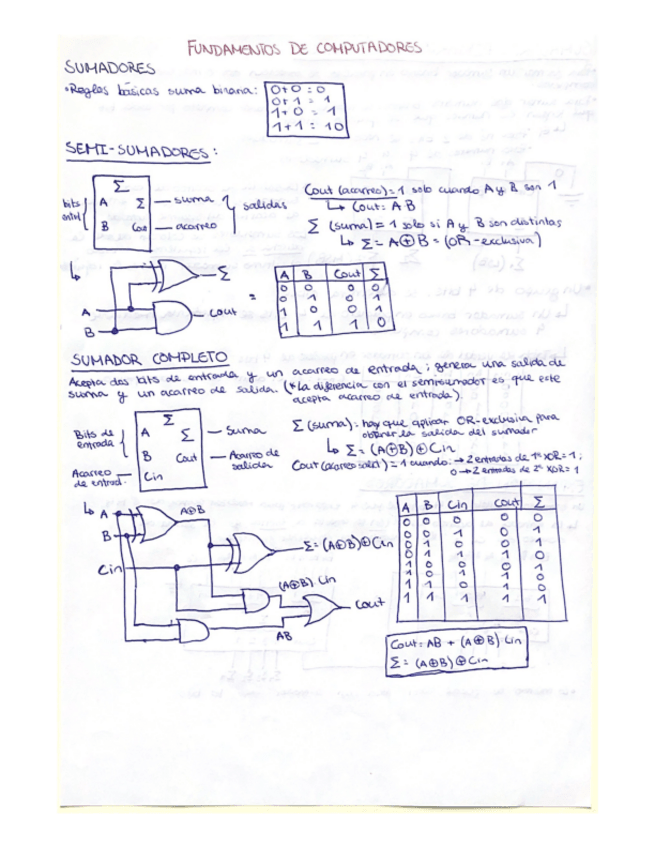 FUNDAMENTOS DE COMPUTADORES
SUMADORES
• Reglas básicas suma binaria:
0+0 = 0
0+1 = 1
1+0 = 1
1+1 = 10
SEMI-SUMADORES:
bits entrd.
Σ
A Σ — suma
B Cout — acarreo
salidas
Cout (acarreo)=1 solo cuando A y B son 1
↳ Cout: AB
Σ (suma)=1 solo si A y B son distintas
↳ Σ = A⊕B = (OR-exclusiva)
↳
A
B
Σ
Cout
=
A B Cout Σ
0 0 0 0
0 1 0 1
1 0 0 1
1 1 1 0
SUMADOR COMPLETO
Acepta dos bits de entrada y un acarreo de entrada; genera una salida de
suma y un acarreo de salida. (*La diferencia con el semisumador es, que este
acepta acarreo de entrada).
Bits de entrada
Acarreo de entrad.
Σ
A Σ — Suma
B Cout — Acarreo de salida
Cin
Σ (suma): hay que aplicar OR-exclusiva para
obtener la salida del sumador
↳ Σ = (A⊕B)⊕Cin
Cout (acarreo salid)=1 cuando: → 2 entradas de 1º XOR=1;
o → 2 entradas de 2º XOR=1
↳ A
B
Cin
A⊕B
Σ=(A⊕B)⊕Cin
(A⊕B)·Cin
Cout
AB
A B Cin Cout Σ
0 0 0 0 0
0 0 1 0 1
0 1 0 0 1
0 1 1 1 0
1 0 0 0 1
1 0 1 1 0
1 1 0 1 0
1 1 1 1 1
Cout: AB + (A⊕B)·Cin
Σ = (A⊕B)⊕Cin